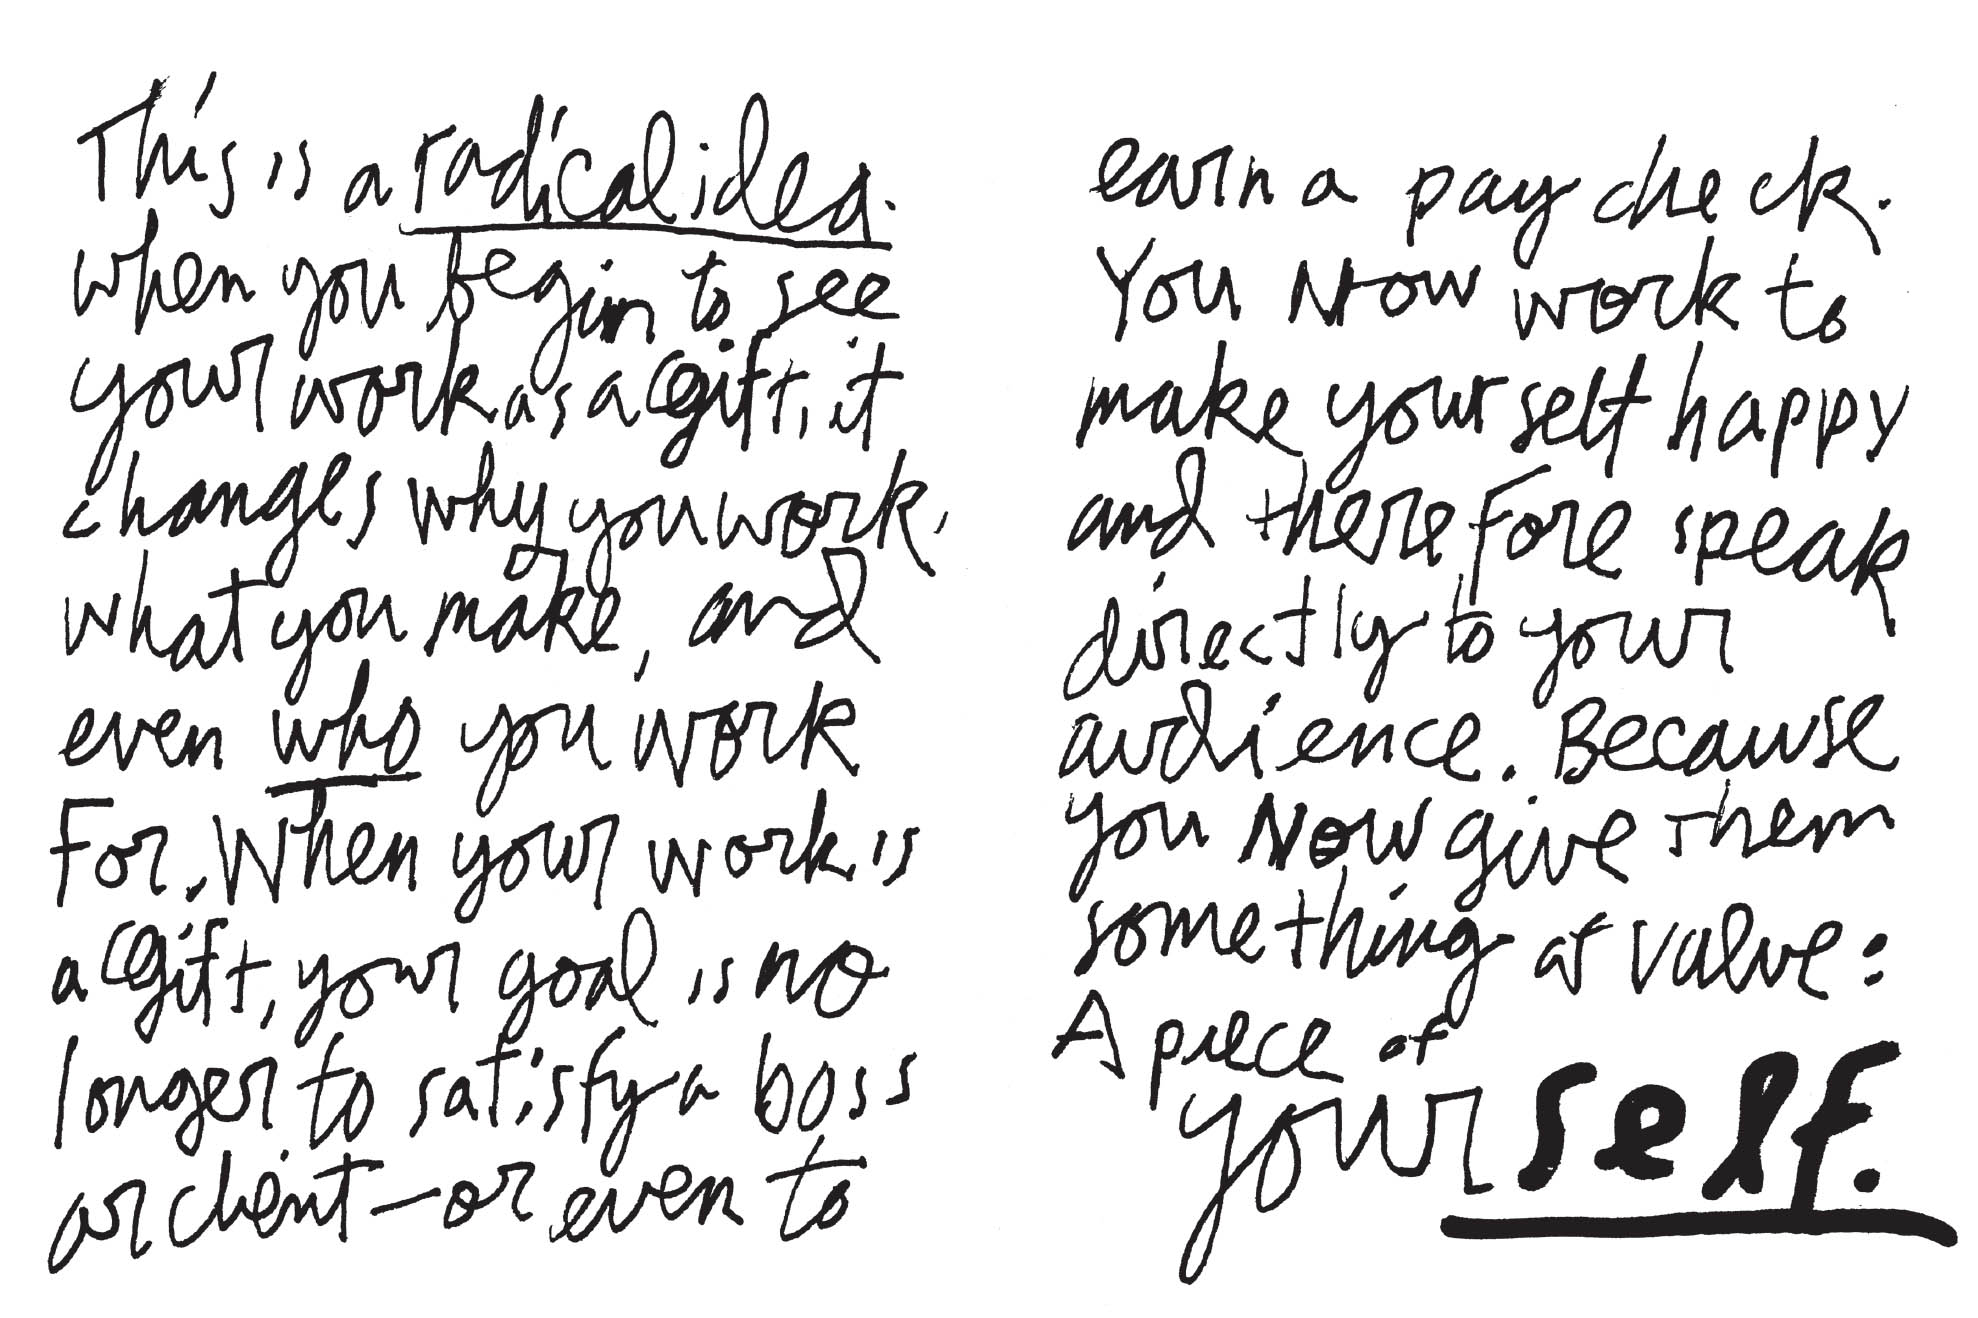 This is a radical idea.
when you begin to see
your work as a gift, it
changes why you work,
what you make, and
even who you work
For. When your work is
a gift, your goal is no
longer to satisfy a boss
or client—or even to
earn a pay check.
You Now work to
make yourself happy
and therefore speak
directly to your
audience. Because
you Now give them
something of value:
A piece of
yourself.